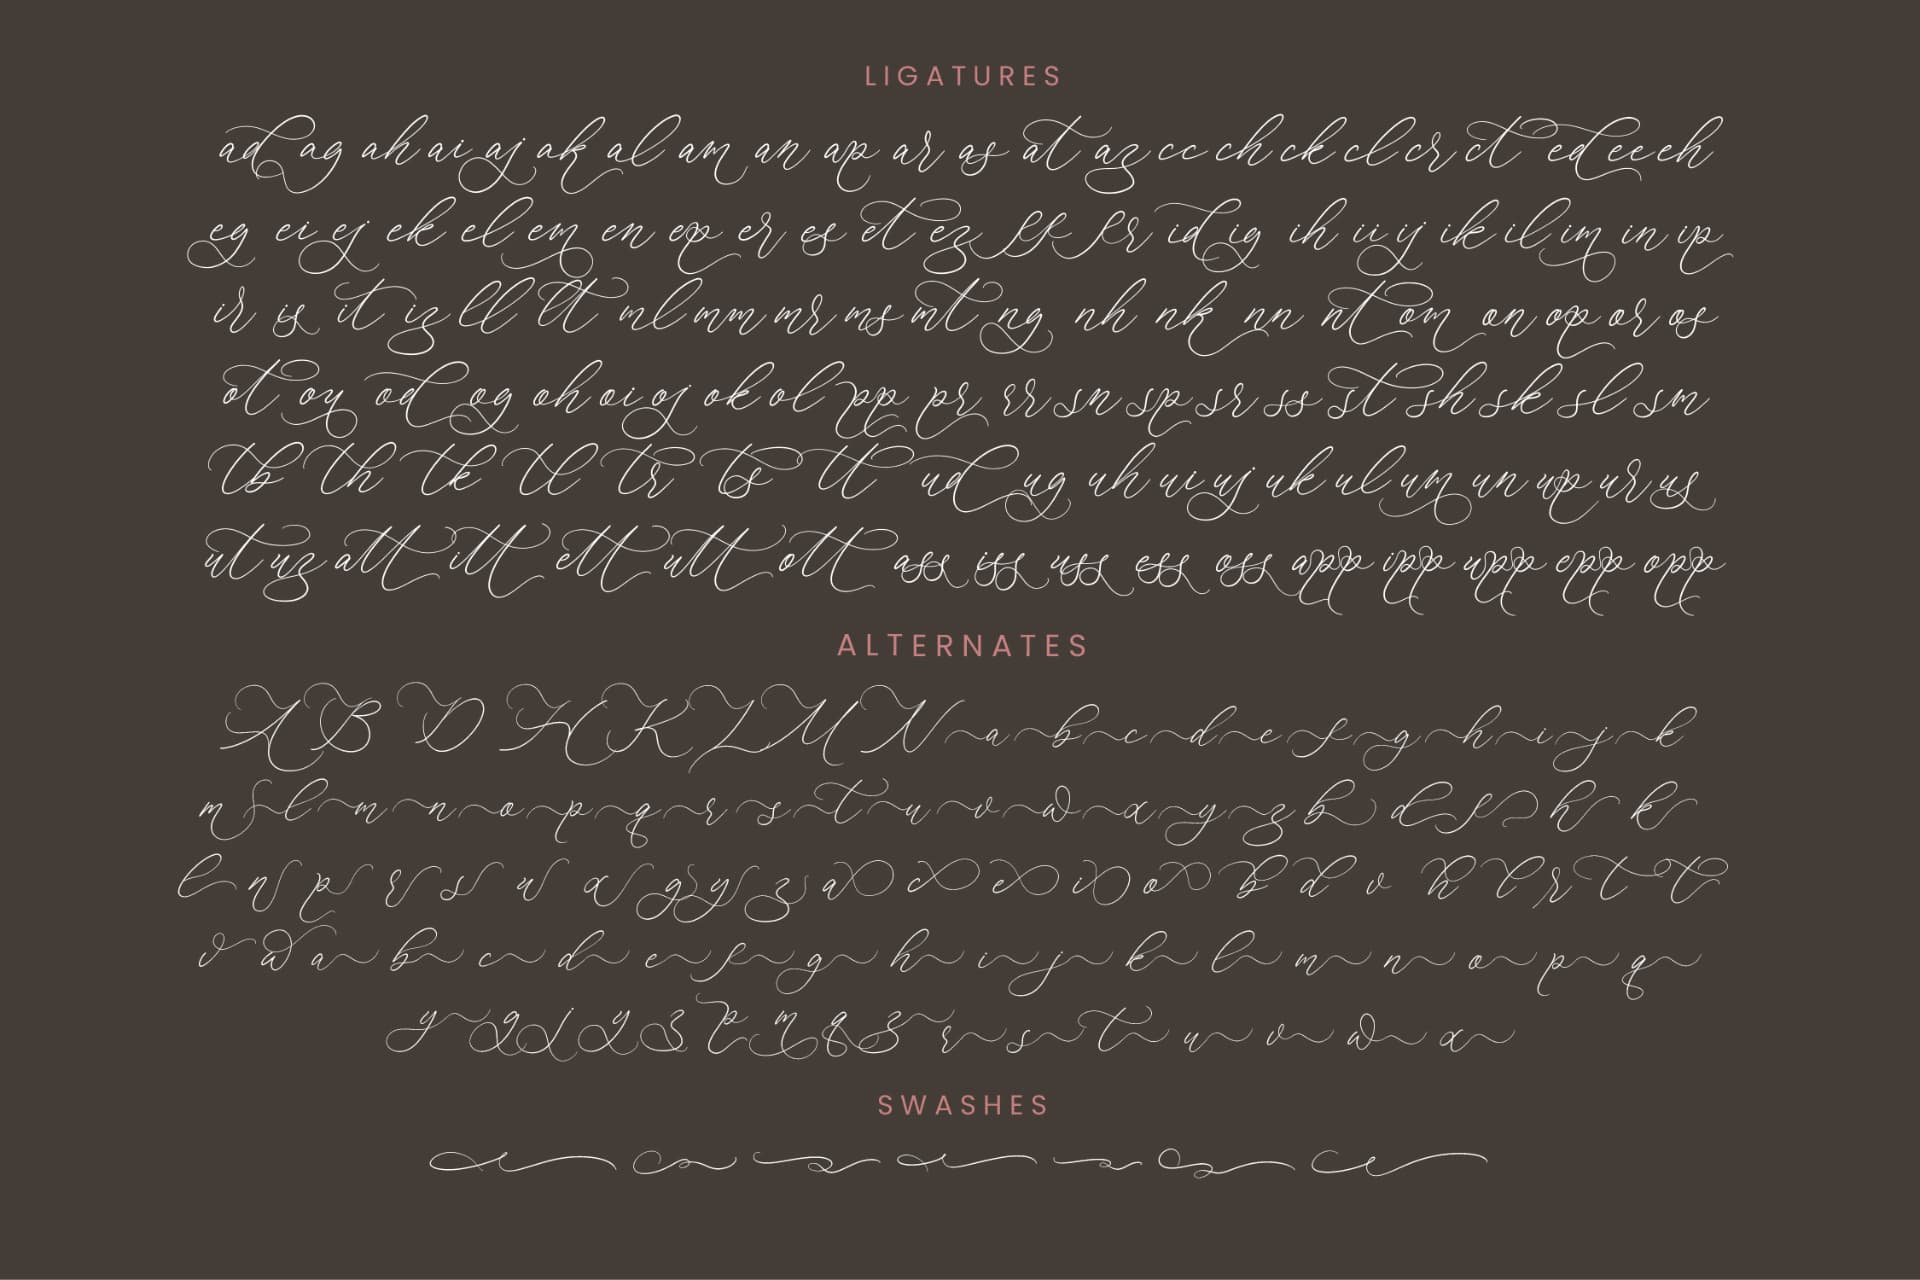 LIGATURES
ad ag ah ai aj ak al am an ap ar as at az cc ch ck cl cr ct ed ee eh
eg ei ej ek el em en ep er es et ez ff fr id ig ih ii ij ik il im in ip
ir is it iz ll lt ml mm mr ms mt ng nh nk nn nt om on op or os
ot ou od og oh oi oj ok ol pp pr rr sn sp sr ss st sh sk sl sm
tb th tk tl tr ts tt ud ug uh ui uj uk ul um un up ur us
ut uz att itt ett utt ott ass iss uss ess oss app ipp upp epp opp
ALTERNATES
A B D H K L M N a b c d e f g h i j k
m l m n o p q r s t u v w x y z b d f h k
l n p r s u x g y z a c e i o b d v h l r t t
v w a b c d e f g h i j k l m n o p q
y g j y z p m q z r s t u v w x
SWASHES